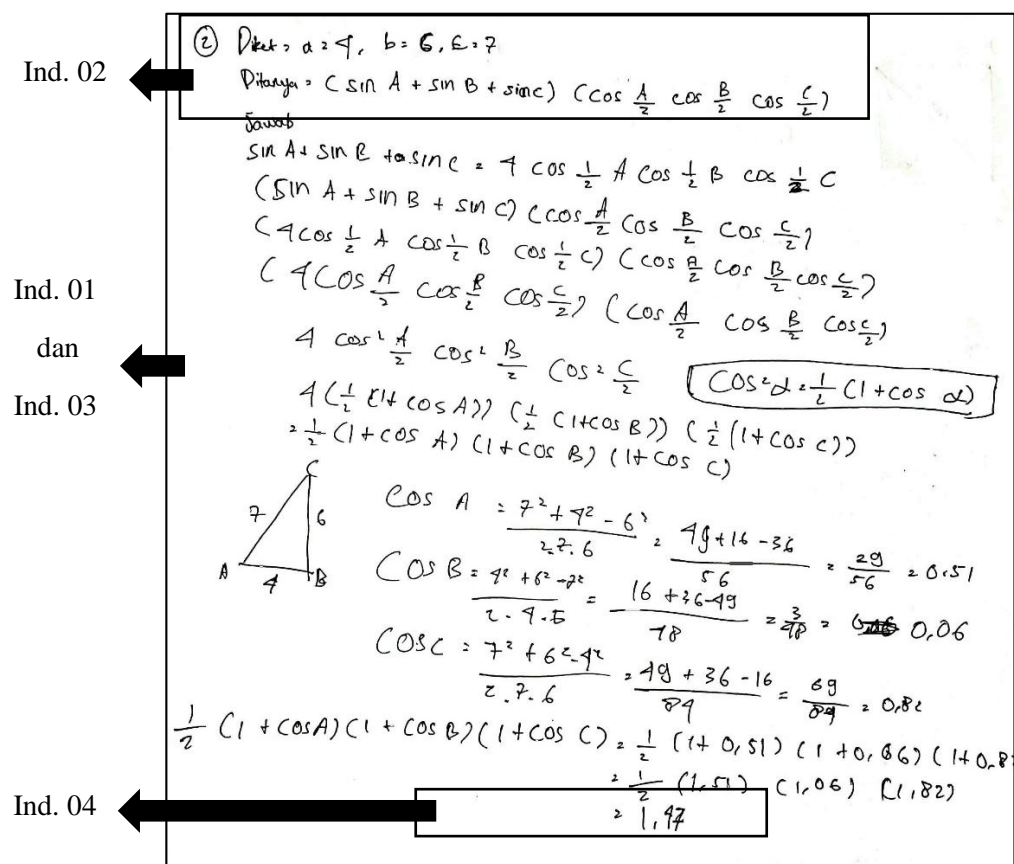 Ind. 02
② Diket = a = 4, b = 6, c = 7
Ditanya = (sin A + sin B + sin c) (cos A/2 cos B/2 cos C/2)
Jawab
sin A + sin B + sin c = 4 cos 1/2 A cos 1/2 B cos 1/2 C
(sin A + sin B + sin C) (cos A/2 cos B/2 cos C/2)
(4 cos 1/2 A cos 1/2 B cos 1/2 C) (cos A/2 cos B/2 cos C/2)
Ind. 01
dan
Ind. 03
(4 cos A/2 cos B/2 cos C/2) (cos A/2 cos B/2 cos C/2)
4 cos² A/2 cos² B/2 cos² C/2
cos² α = 1/2 (1 + cos α)
4 (1/2 (1 + cos A)) (1/2 (1 + cos B)) (1/2 (1 + cos C))
= 1/2 (1 + cos A) (1 + cos B) (1 + cos C)
C
7 6
A 4 B
cos A = (7² + 4² - 6²)/(2.7.6) = (49 + 16 - 36)/56 = 29/56 = 0.51
cos B = (4² + 6² - 7²)/(2.4.6) = (16 + 36 - 49)/48 = 3/48 = 0,06
cos C = (7² + 6² - 4²)/(2.7.6) = (49 + 36 - 16)/84 = 69/84 = 0,82
1/2 (1 + cos A) (1 + cos B) (1 + cos C) = 1/2 (1 + 0,51) (1 + 0,06) (1 + 0,8
= 1/2 (1,51) (1,06) (1,82)
Ind. 04
= 1,47